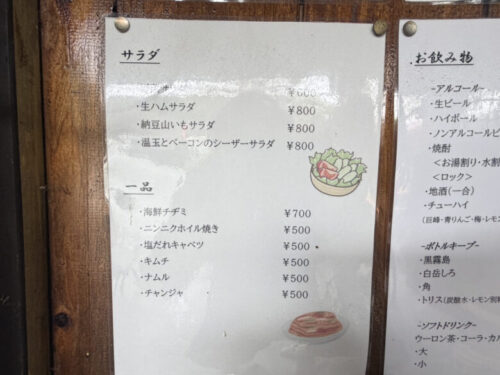 サラダ
¥600
・生ハムサラダ ¥800
・納豆山いもサラダ ¥800
・温玉とベーコンのシーザーサラダ ¥800
一品
・海鮮チヂミ ¥700
・ニンニクホイル焼き ¥500
・塩だれキャベツ ¥500
・キムチ ¥500
・ナムル ¥500
・チャンジャ ¥500
お飲み物
-アルコール-
・生ビール
・ハイボール
・ノンアルコールビ
・焼酎
<お湯割り・水割
<ロック>
・地酒(一合)
・チューハイ
(巨峰・青りんご・梅・レモン
-ボトルキープ-
・黒霧島
・白岳しろ
・角
・トリス(炭酸水・レモン別料
-ソフトドリンク-
ウーロン茶・コーラ・カル
・大
・小